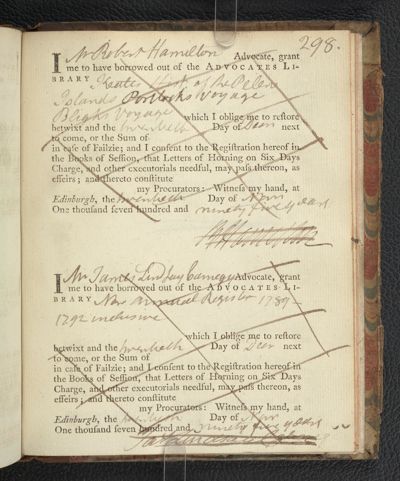 298.
I Mr Robert Hamilton Advocate, grant
me to have borrowed out of the ADVOCATES LI-
BRARY Keates Hist of the Pelew
Islands Portlocks Voyage
Blighs Voyage which I oblige me to reſtore
betwixt and the twentieth Day of next
to come, or the Sum of
in caſe of Failzie; and I conſent to the Regiſtration hereof in
the Books of Seſſion, that Letters of Horning on Six Days
Charge, and other executorials needful, may paſs thereon, as
effeirs; and thereto conſtitute
my Procurators: Witneſs my hand, at
Edinburgh, the twentieth Day of
One thouſand ſeven hundred and ninety five years
I Mr James Lindsay Carnegy Advocate, grant
me to have borrowed out of the ADVOCATES LI-
BRARY New Annual Register 1789–
1792 inclusive
which I oblige me to reſtore
betwixt and the twentieth Day of next
to come, or the Sum of
in caſe of Failzie; and I conſent to the Regiſtration hereof in
the Books of Seſſion, that Letters of Horning on Six Days
Charge, and other executorials needful, may paſs thereon, as
effeirs; and thereto conſtitute
my Procurators: Witneſs my hand, at
Edinburgh, the twentieth Day of
One thouſand ſeven hundred and ninety five years